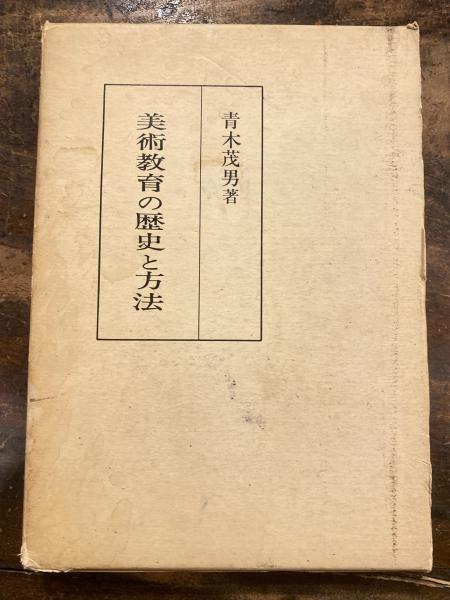 青木茂男著
美術教育の歴史と方法